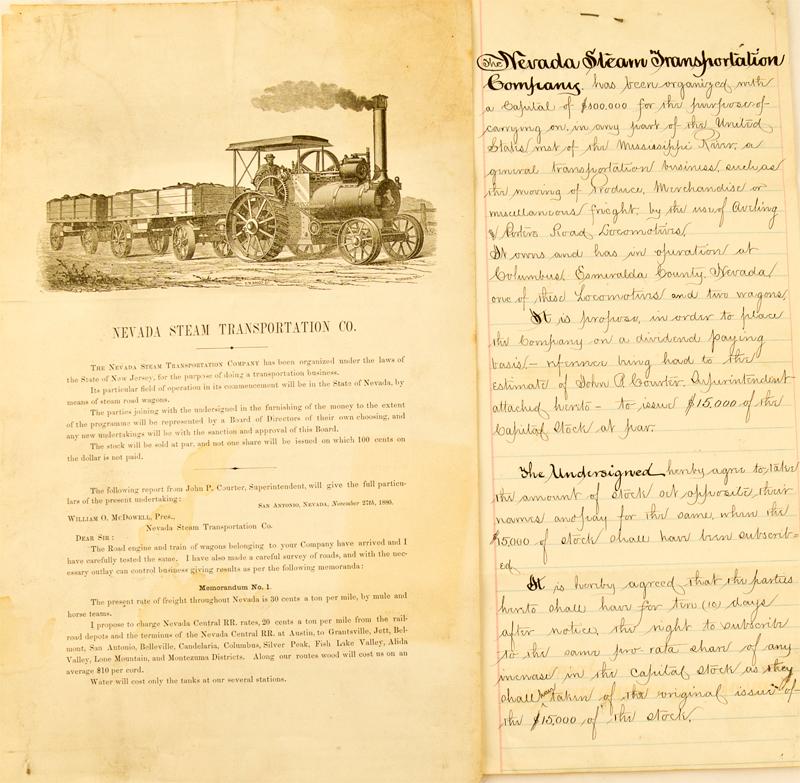 NEVADA STEAM TRANSPORTATION CO.
THE NEVADA STEAM TRANSPORTATION COMPANY has been organized under the laws of
the State of New Jersey, for the purpose of doing a transportation business.
Its particular field of operation in its commencement will be in the State of Nevada, by
means of steam road wagons.
The parties joining with the undersigned in the furnishing of the money to the extent
of the programme will be represented by a Board of Directors of their own choosing, and
any new undertakings will be with the sanction and approval of this Board.
The stock will be sold at par, and not one share will be issued on which 100 cents on
the dollar is not paid.
The following report from John P. Courter, Superintendent, will give the full particu-
lars of the present undertaking:
SAN ANTONIO, NEVADA, November 27th, 1880.
WILLIAM O. McDOWELL, Pres.,
Nevada Steam Transportation Co.
DEAR SIR:
The Road engine and train of wagons belonging to your Company have arrived and I
have carefully tested the same. I have also made a careful survey of roads, and with the nec-
essary outlay can control business giving results as per the following memoranda:
Memorandum No. 1.
The present rate of freight throughout Nevada is 30 cents a ton per mile, by mule and
horse teams.
I propose to charge Nevada Central RR. rates, 20 cents a ton per mile from the rail-
road depots and the terminus of the Nevada Central RR. at Austin, to Grantsville, Jett, Bel-
mont, San Antonio, Belleville, Candelaria, Columbus, Silver Peak, Fish Lake Valley, Alida
Valley, Lone Mountain, and Montezuma Districts. Along our routes wood will cost us on an
average $10 per cord.
Water will cost only the tanks at our several stations.
The Nevada Steam Transportation
Company. has been organized with
a Capital of $100.000 for the purpose of
carrying on, in any part of the United
States west of the Mississippi River, a
general transportation business, such as
the moving of Produce, Merchandise or
miscellaneous freight, by the use of Aveling
& Porters Road Locomotives.
It owns and has in operation at
Columbus, Esmeralda County, Nevada
one of these Locomotives and two wagons.
It is propose, in order to place
the Company on a dividend paying
basis, - reference being had to the
estimate of John P. Courter. Superintendent
attached hereto - to issue $15,000 of the
Capital Stock at par.
The Undersigned hereby agree to take
the amount of stock set opposite their
names and pay for the same, when the
$15,000 of stock shall have been subscrib=
ed
It is hereby agreed that the parties
hereto shall have for ten (10) days
after notice, the right to subscribe
to the same pro rata share of any
increase in the capital stock as they
shall have taken of the original issue of
the $15.000 of the stock.